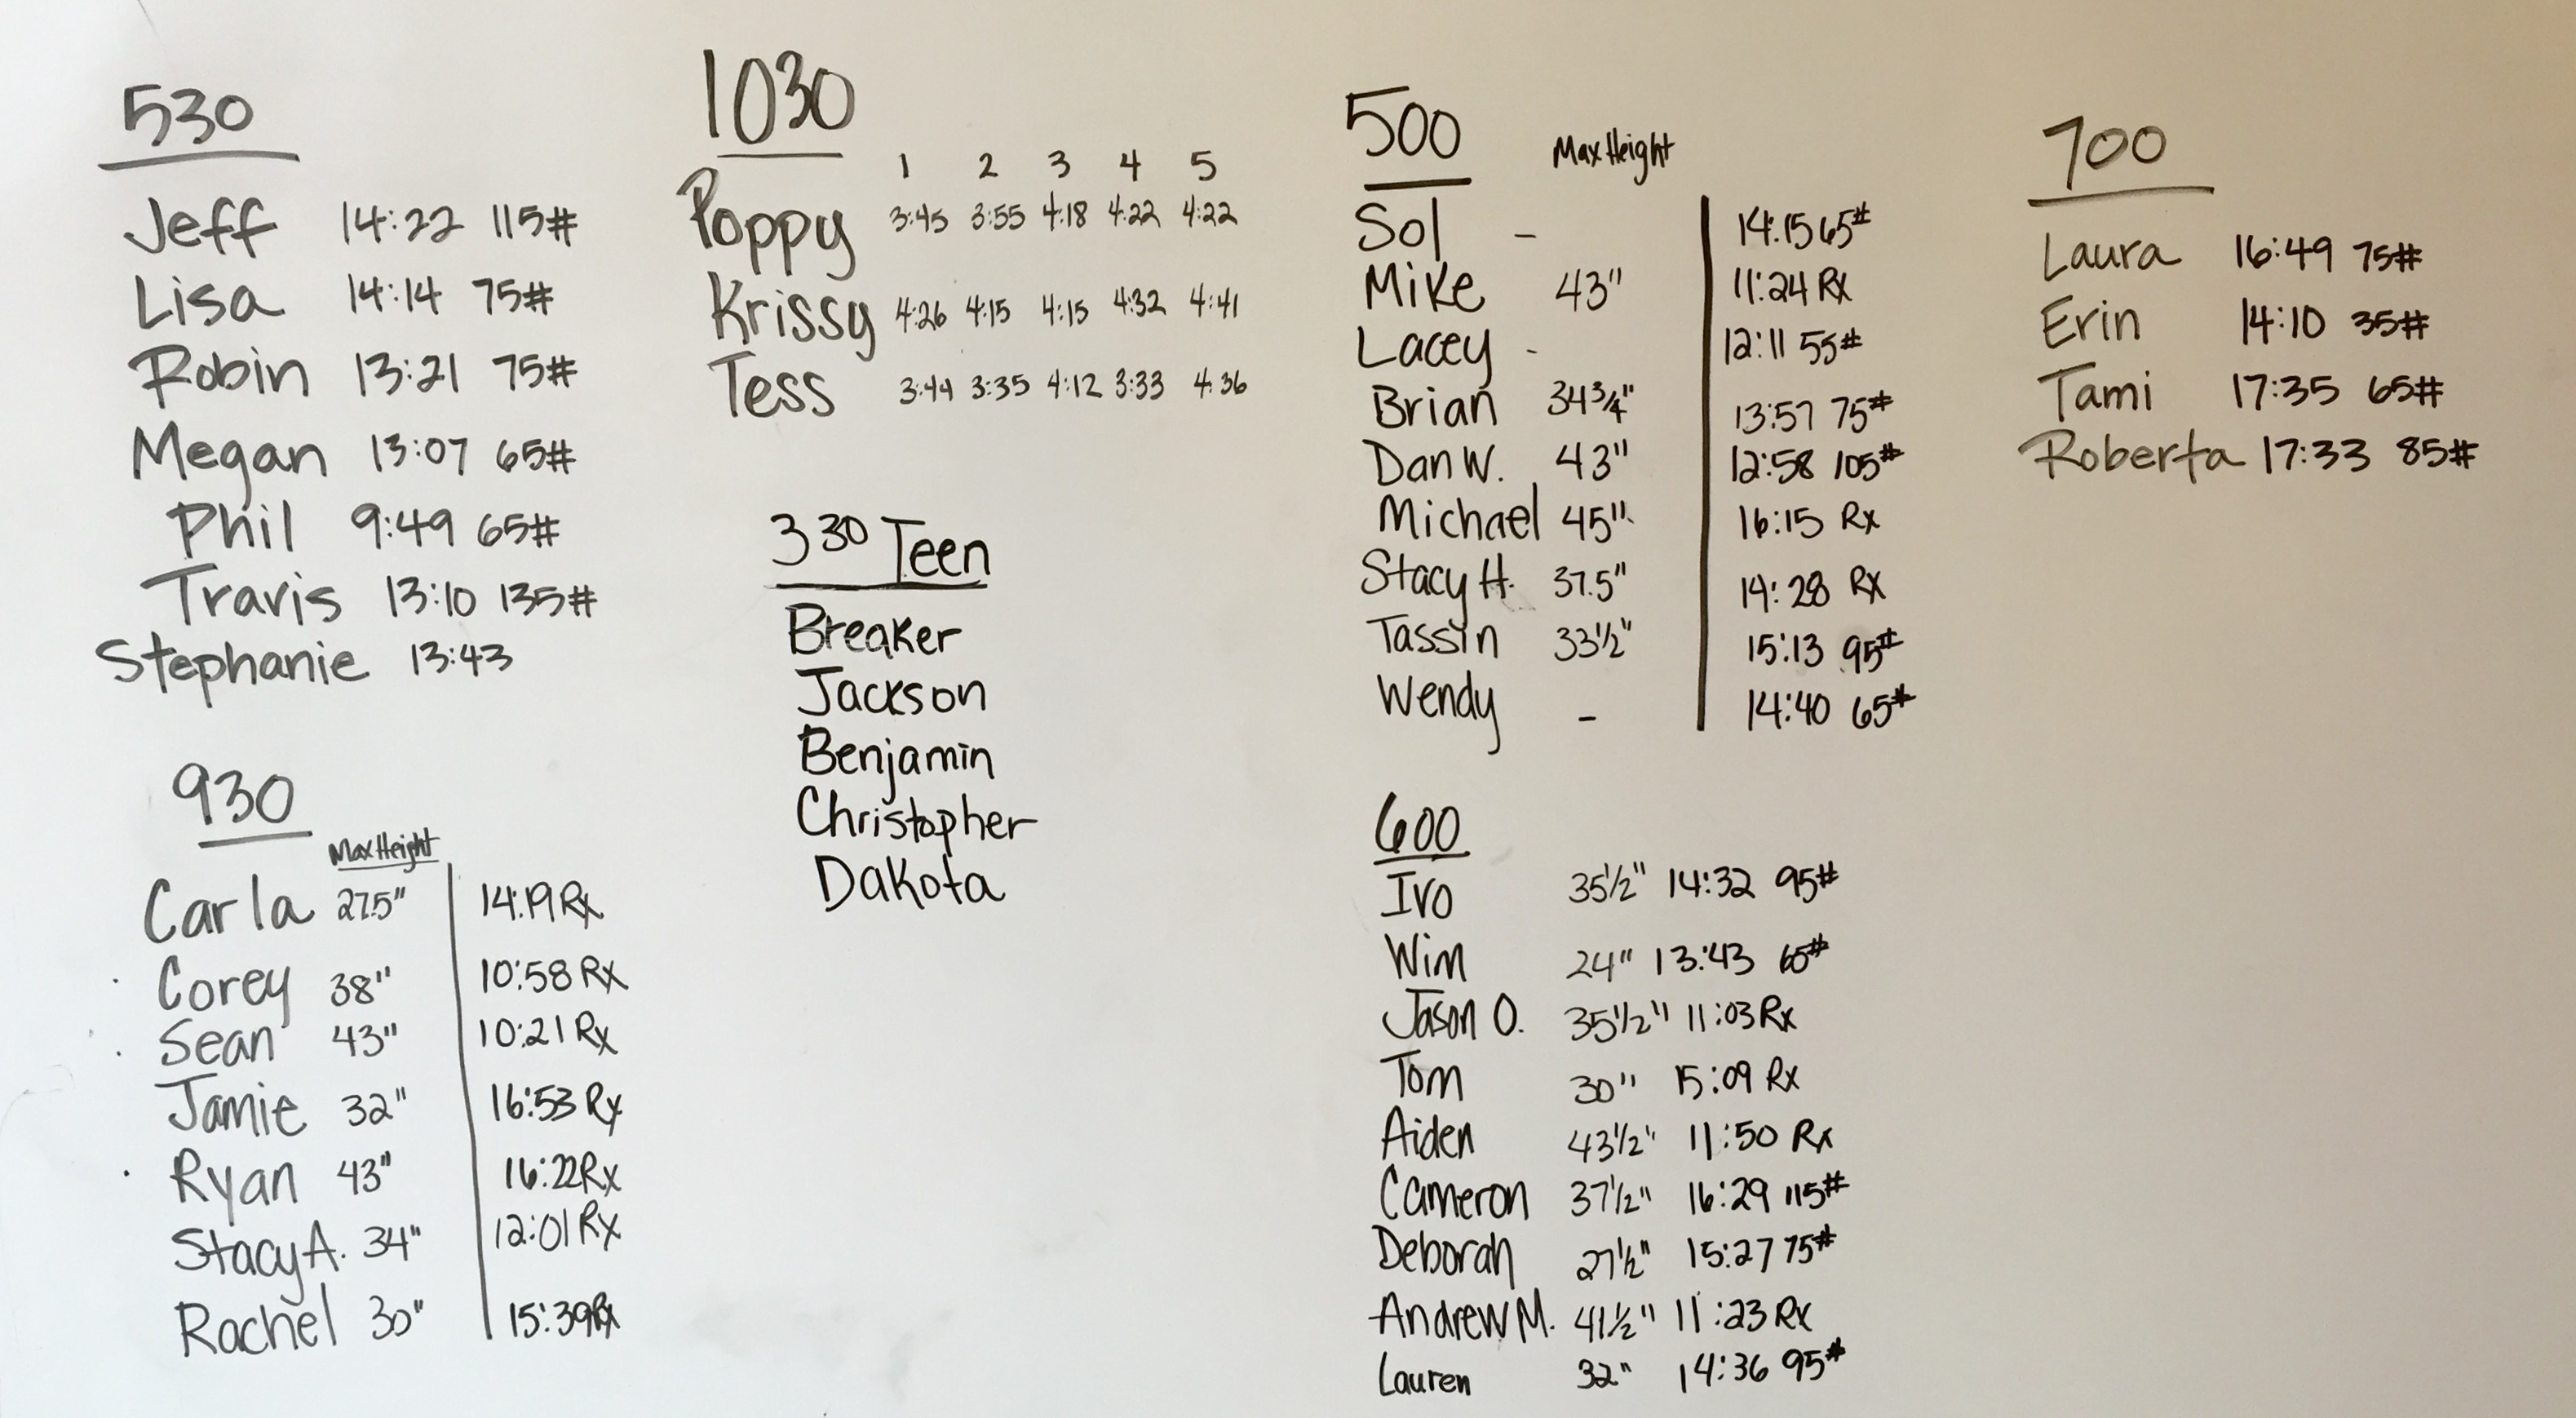 530
Jeff 14:22 115#
Lisa 14:14 75#
Robin 13:21 75#
Megan 13:07 65#
Phil 9:49 65#
Travis 13:10 135#
Stephanie 13:43
930
Max Height
Carla 27.5" 14:19 Rx
Corey 38" 10:58 Rx
Sean 43" 10:21 Rx
Jamie 32" 16:53 Rx
Ryan 43" 16:22 Rx
Stacy A. 34" 12:01 Rx
Rachel 30" 15:39 Rx
1030
1 2 3 4 5
Poppy 3:45 3:55 4:18 4:22 4:22
Krissy 4:26 4:15 4:15 4:32 4:41
Tess 3:44 3:35 4:12 3:33 4:36
330 Teen
Breaker
Jackson
Benjamin
Christopher
Dakota
500 Max Height
Sol - 14:15 65#
Mike 43" 11:24 Rx
Lacey - 12:11 55#
Brian 34 3/4" 13:57 75#
Dan W. 43" 12:58 105#
Michael 45" 16:15 Rx
Stacy H. 37.5" 14:28 Rx
Tassin 33 1/2" 15:13 95#
Wendy - 14:40 65#
600
Ivo 35 1/2" 14:32 95#
Wim 24" 13:43 65#
Jason O. 35 1/2" 11:03 Rx
Tom 30" 15:09 Rx
Aiden 43 1/2" 11:50 Rx
Cameron 37 1/2" 16:29 115#
Deborah 27 1/2" 15:27 75#
Andrew M. 41 1/2" 11:23 Rx
Lauren 32" 14:36 95#
700
Laura 16:49 75#
Erin 14:10 35#
Tami 17:35 65#
Roberta 17:33 85#